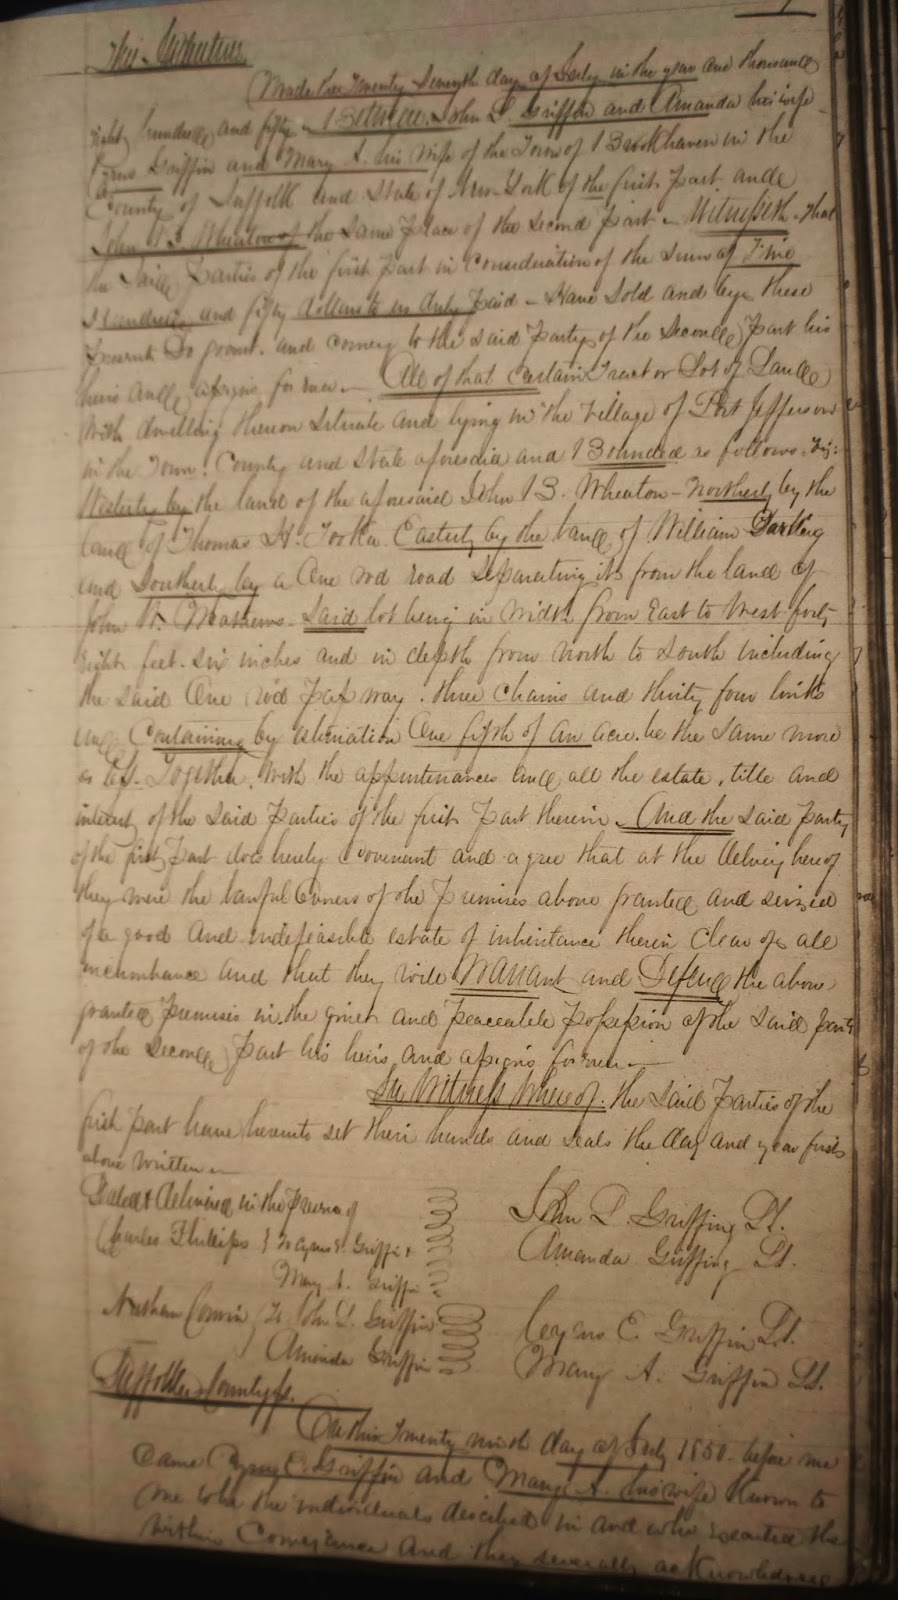 This Indenture
Made the Twenty Seventh day of July in the year one thousand
eight hundred and fifty Between John L. Griffin and Amanda his wife
Cyrus Griffin and Mary A. his wife of the Town of Brookhaven in the
County of Suffolk and State of New York of the first part and
John B. Wheaton of the same place of the second part Witnesseth that
the said parties of the first part in consideration of the sum of Five
Hundred and fifty dollars to us duly paid Have Sold and by these
presents Do grant and convey to the said Party of the Second part his
heirs and assigns forever All of that certain Tract or Lot of Land
with dwelling thereon Situate and lying in the Village of Port Jefferson
in the Town County and State aforesaid and Bounded as follows Viz:
Westerly by the land of the aforesaid John B. Wheaton Northerly by the
land of Thomas H. Tooker Easterly by the land of William Darling
and Southerly by a One rod road separating it from the land of
John R. Mathews Said lot being in width from East to West forty
eight feet six inches and in depth from North to South including
the said One rod pass way three chains and thirty four links
and Containing by estimation One fifth of an acre be the same more
or less Together with the appurtenances and all the estate, title and
interest of the said Parties of the first part therein And the said party
of the first part does hereby covenant and agree that at the delivery hereof
they were the lawful Owners of the Premises above granted and seized
of a good and indefeasible estate of inheritance therein clear of all
incumbrance and that they will Warrant and Defend the above
granted premises in the quiet and peaceable possession of the said party
of the Second part his heirs and assigns forever
In Witness Whereof the said Parties of the
first part have hereunto set their hands and seals the day and year first
above written
Sealed & delivered in the presence of
Charles Phillips to Cyrus E. Griffin
Mary A. Griffin
Nathan to John L. Griffin
Amanda Griffin
John L. Griffing L.S.
Amanda Griffing L.S.
Cyrus E. Griffin L.S.
Mary A. Griffin L.S.
Suffolk County ss.
On this Twenty ninth day of July 1850 before me
Came Cyrus E. Griffin and Mary A. his wife known to
me to be the individuals described in and who executed the
within Conveyance and they severally acknowledged